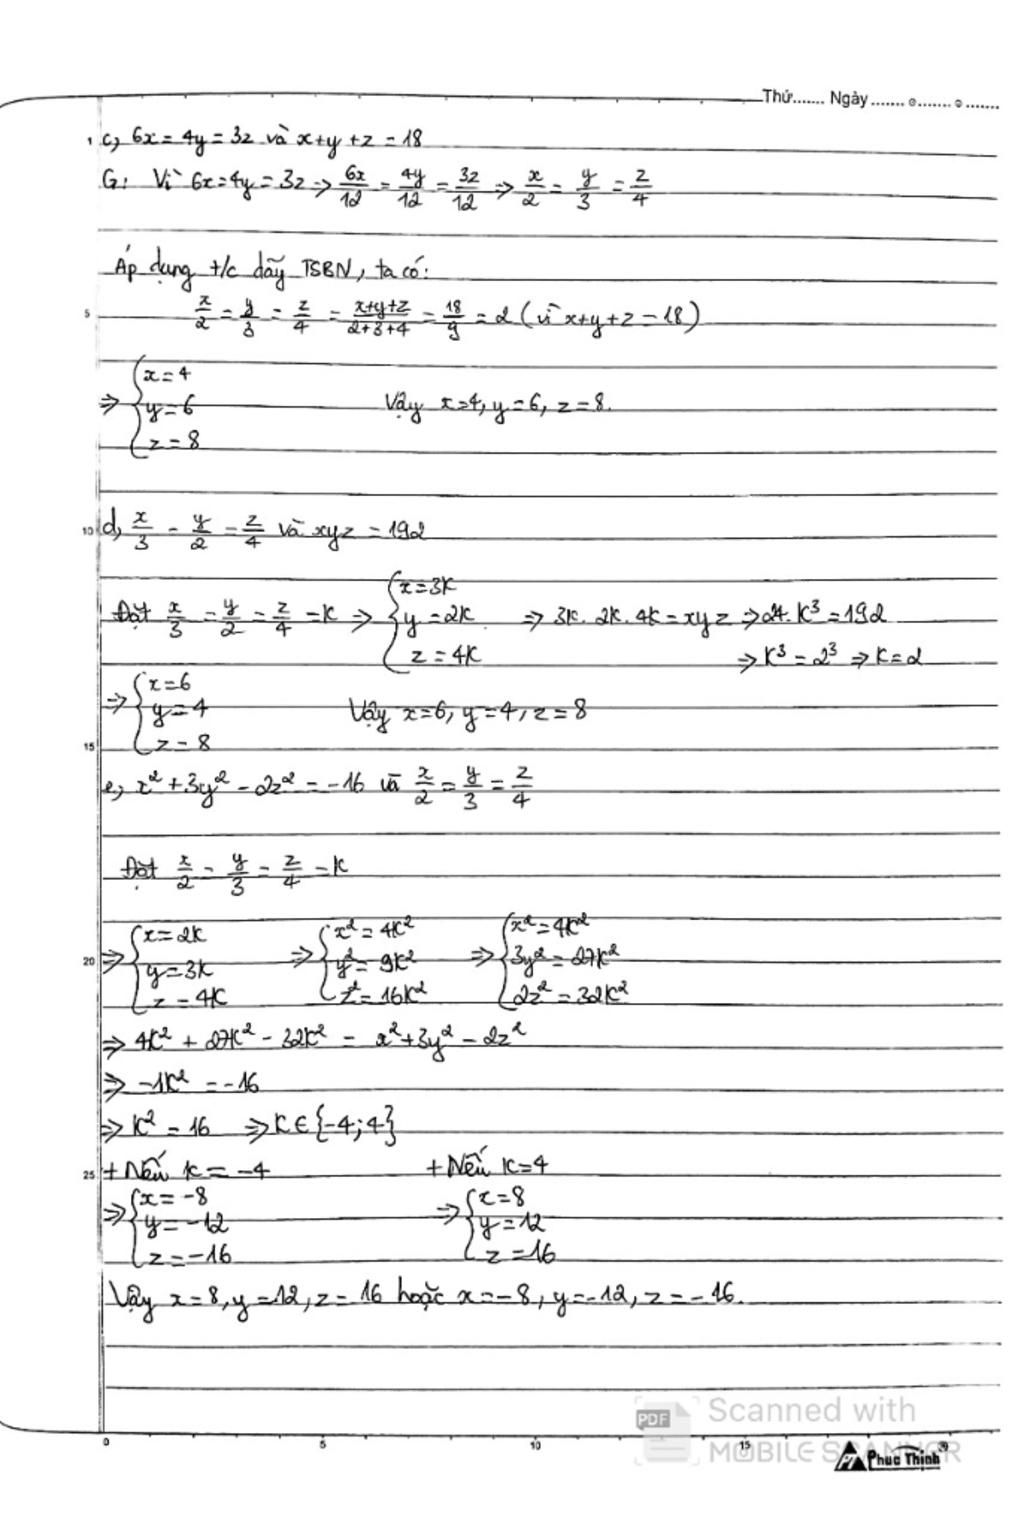 Thứ....... Ngày ....... ........ .......
1 c, 6x = 4y = 3z và x+y+z = 18
G: Vì 6x=4y=3z => 6x/12 = 4y/12 = 3z/12 => x/2 = y/3 = z/4
Áp dụng t/c dãy TSBN, ta có:
5 x/2 = y/3 = z/4 = x+y+z/2+3+4 = 18/9 = 2 (vì x+y+z = 18)
x=4
=> { y=6 Vậy x=4, y=6, z=8.
z=8
10 d, x/3 = y/2 = z/4 và xyz = 192
x=3k
Đặt x/3 = y/2 = z/4 = k => { y=2k => 3k. 2k. 4k = xyz => 24. k³ = 192
z=4k => k³ = 2³ => k=2
x=6
=> { y=4 Vậy x=6, y=4, z=8
15 z=8
e, x² + 3y² - 2z² = -16 và x/2 = y/3 = z/4
Đặt x/2 = y/3 = z/4 = k
x=2k x²=4k² x²=4k²
20 => { y=3k => { y²=9k² => { 3y²=27k²
z=4k z²=16k² 2z²=32k²
=> 4k² + 27k² - 32k² = x²+3y² - 2z²
=> -1k² = -16
=> k² = 16 => k∈{-4;4}
25 + Nếu k = -4 + Nếu k=4
x=-8 x=8
=> { y=-12 => { y=12
z=-16 z=16
Vậy x=8, y=12, z=16 hoặc x=-8, y=-12, z=-16.
0 5 10 15 20
PDF Scanned with
MOBILE SCANNER
PT Phuc Thinh